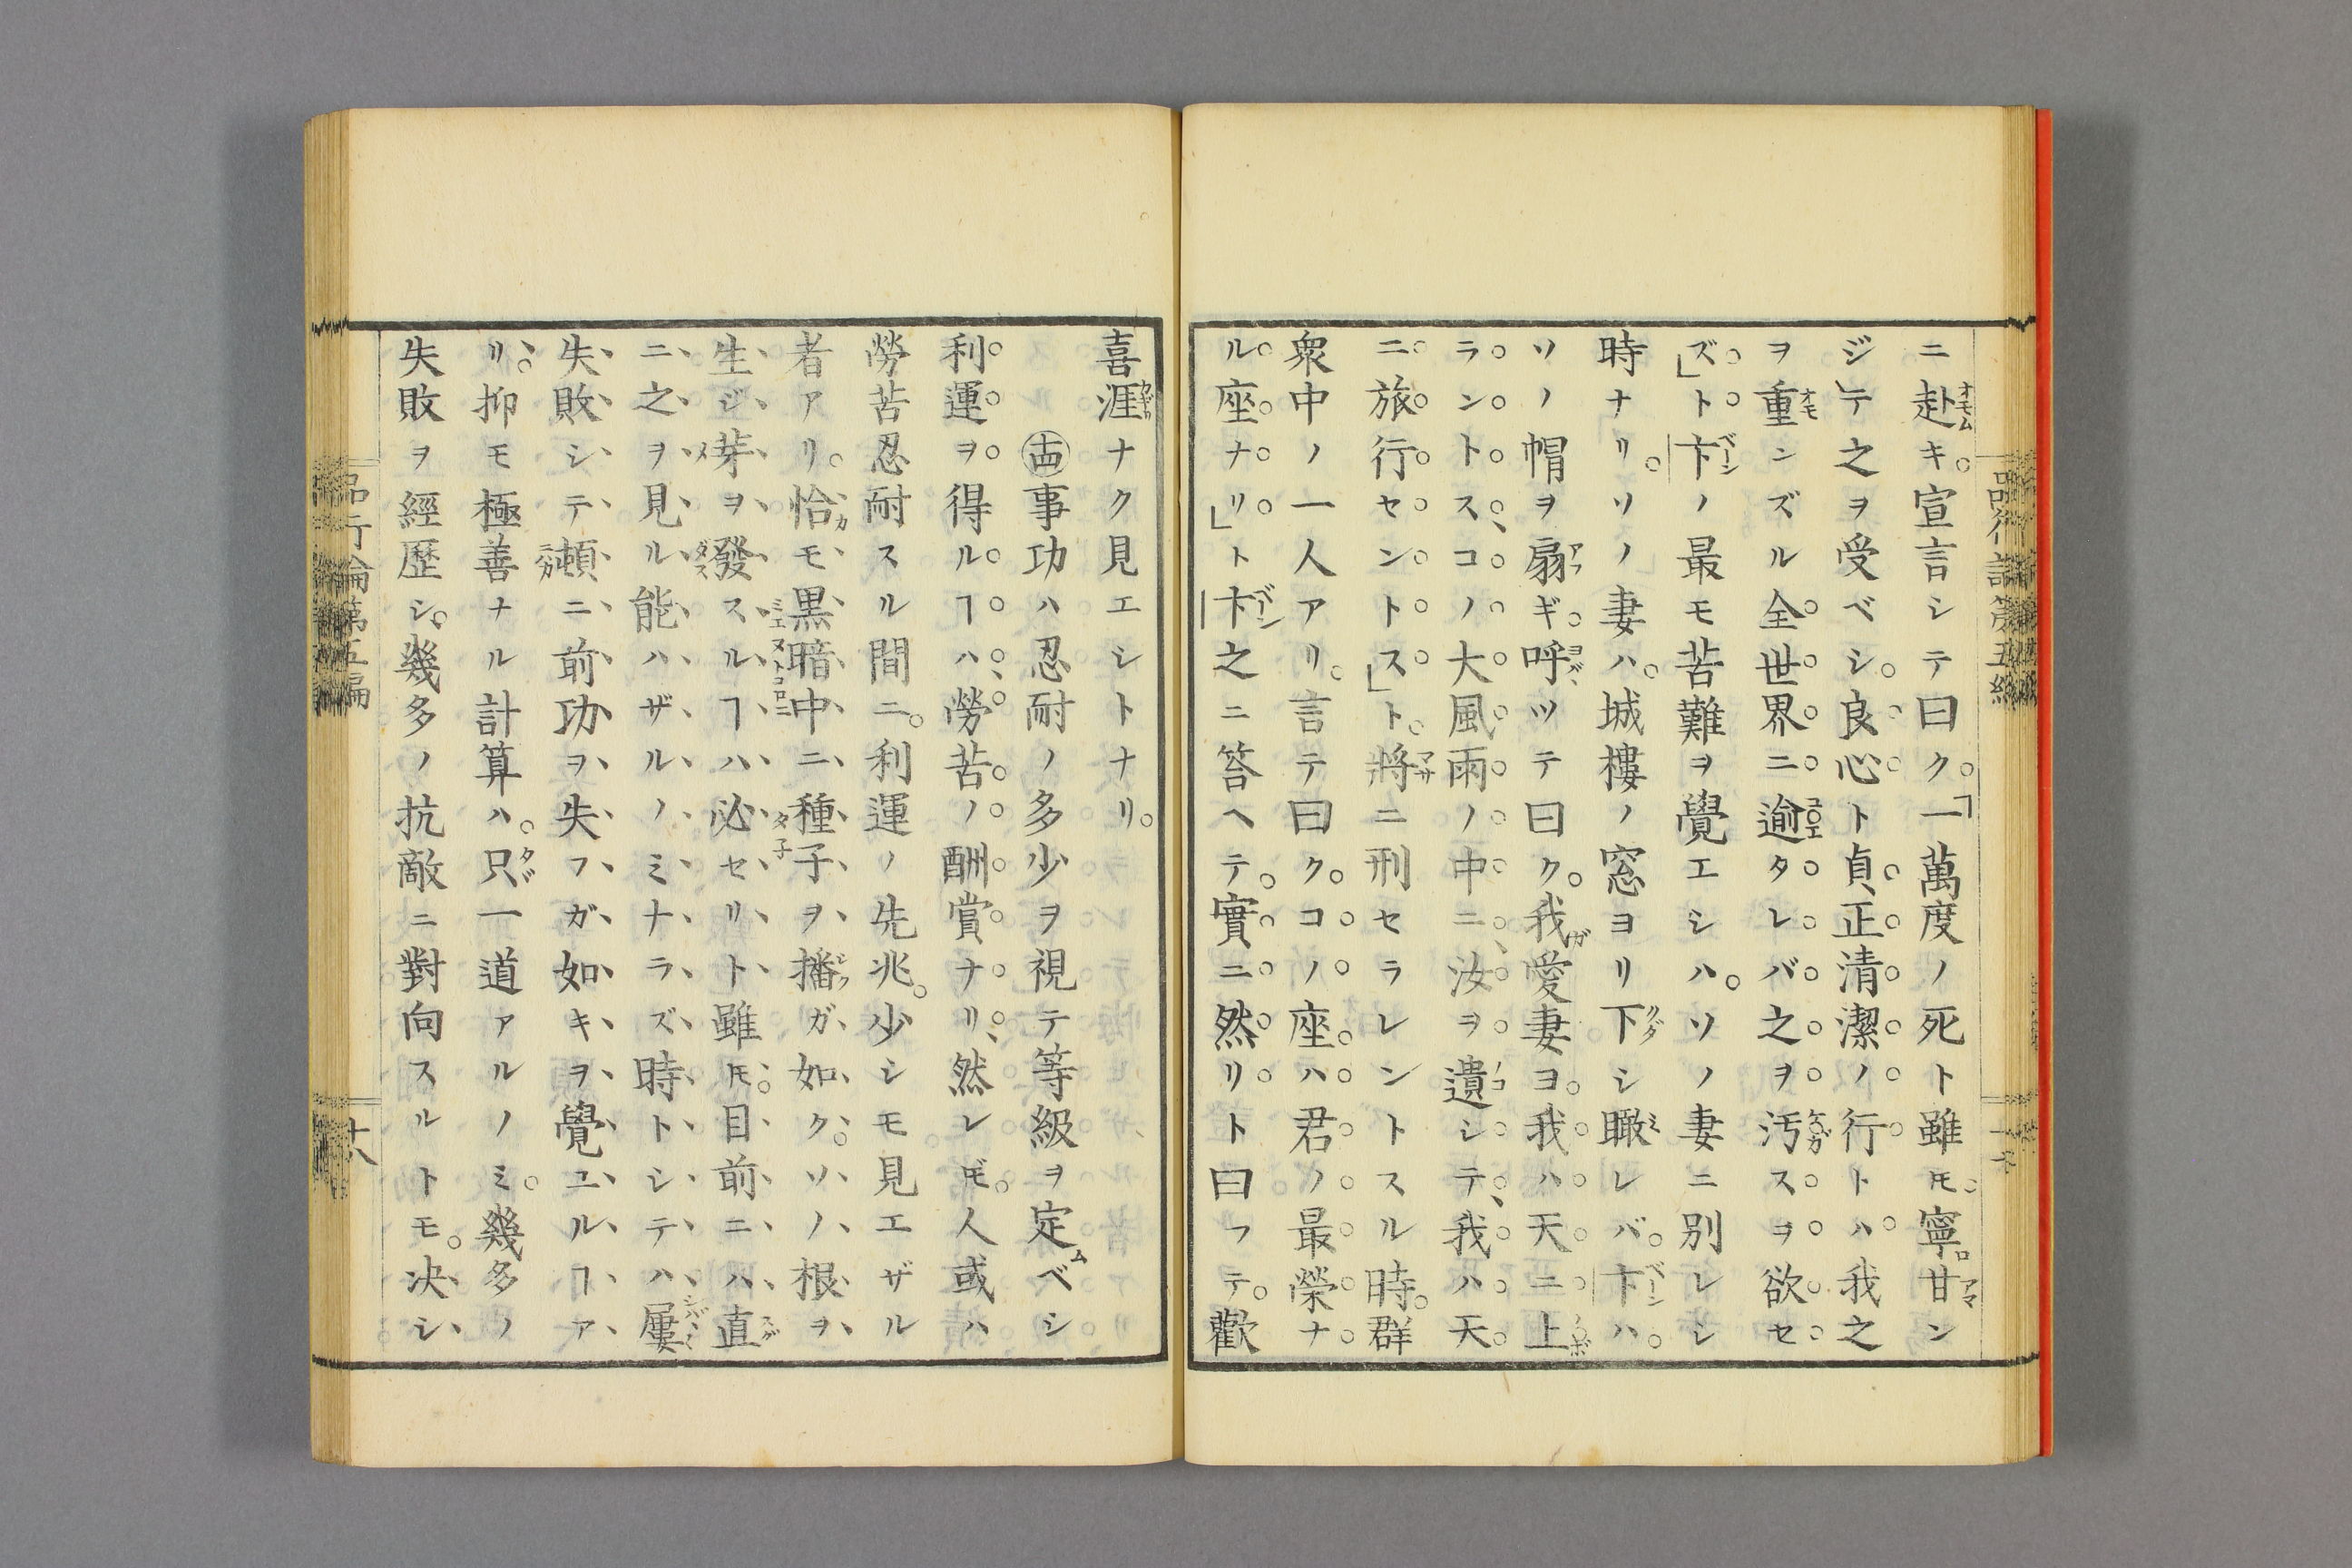 ニ赴キ。宣言シテ曰ク。「一萬度ノ死ト雖𪜈。寧ロ甘ン
ジテ」之ヲ受ベシ。良心ト貞正清潔ノ行トハ我之
ヲ重ンズル全世界ニ逾タレバ之ヲ汚スヲ欲セ
ズ」ト卞ノ最モ苦難ヲ覺エシハ。ソノ妻ニ別レシ
時ナリ。ソノ妻ハ。城樓ノ窓ヨリ下シ瞰レバ。卞ハ
ソノ帽ヲ扇ギ。呼ツテ曰ク。我ガ愛妻ヨ。我ハ天ニ上
ラントス、コノ大風雨ノ中ニ、汝ヲ遺シテ、我ハ天
ニ旅行セントス」ト。將ニ刑セラレントスル時。群
衆中ノ一人アリ。言テ曰ク。コノ座ハ君ノ最榮ナ
ル座ナリ」ト卞之ニ答ヘテ。實ニ然リト曰フテ。歡
喜涯ナク見エシトナリ。
㊃事功ハ忍耐ノ多少ヲ視テ等級ヲ定ムベシ
利運ヲ得ルヿハ、勞苦ノ酬賞ナリ、然レ𪜈。人或ハ
勞苦忍耐スル間ニ。利運ノ先兆。少シモ見エザル
者アリ。恰モ黒暗中ニ種子ヲ播ガ如ク。ソノ根ヲ
生ジ芽ヲ發スルヿハ必セリト雖𪜈。目前ニハ直
ニ之ヲ見ル能ハザルノミナラズ時トシテハ屢
失敗シテ頓ニ前功ヲ失フガ如キヲ覺ユルヿア
リ。抑モ極善ナル計算ハ。只一道アルノミ。幾多ノ
失敗ヲ經歷シ。幾多ノ抗敵ニ對向スルトモ。决シ
品行論第五編
十八